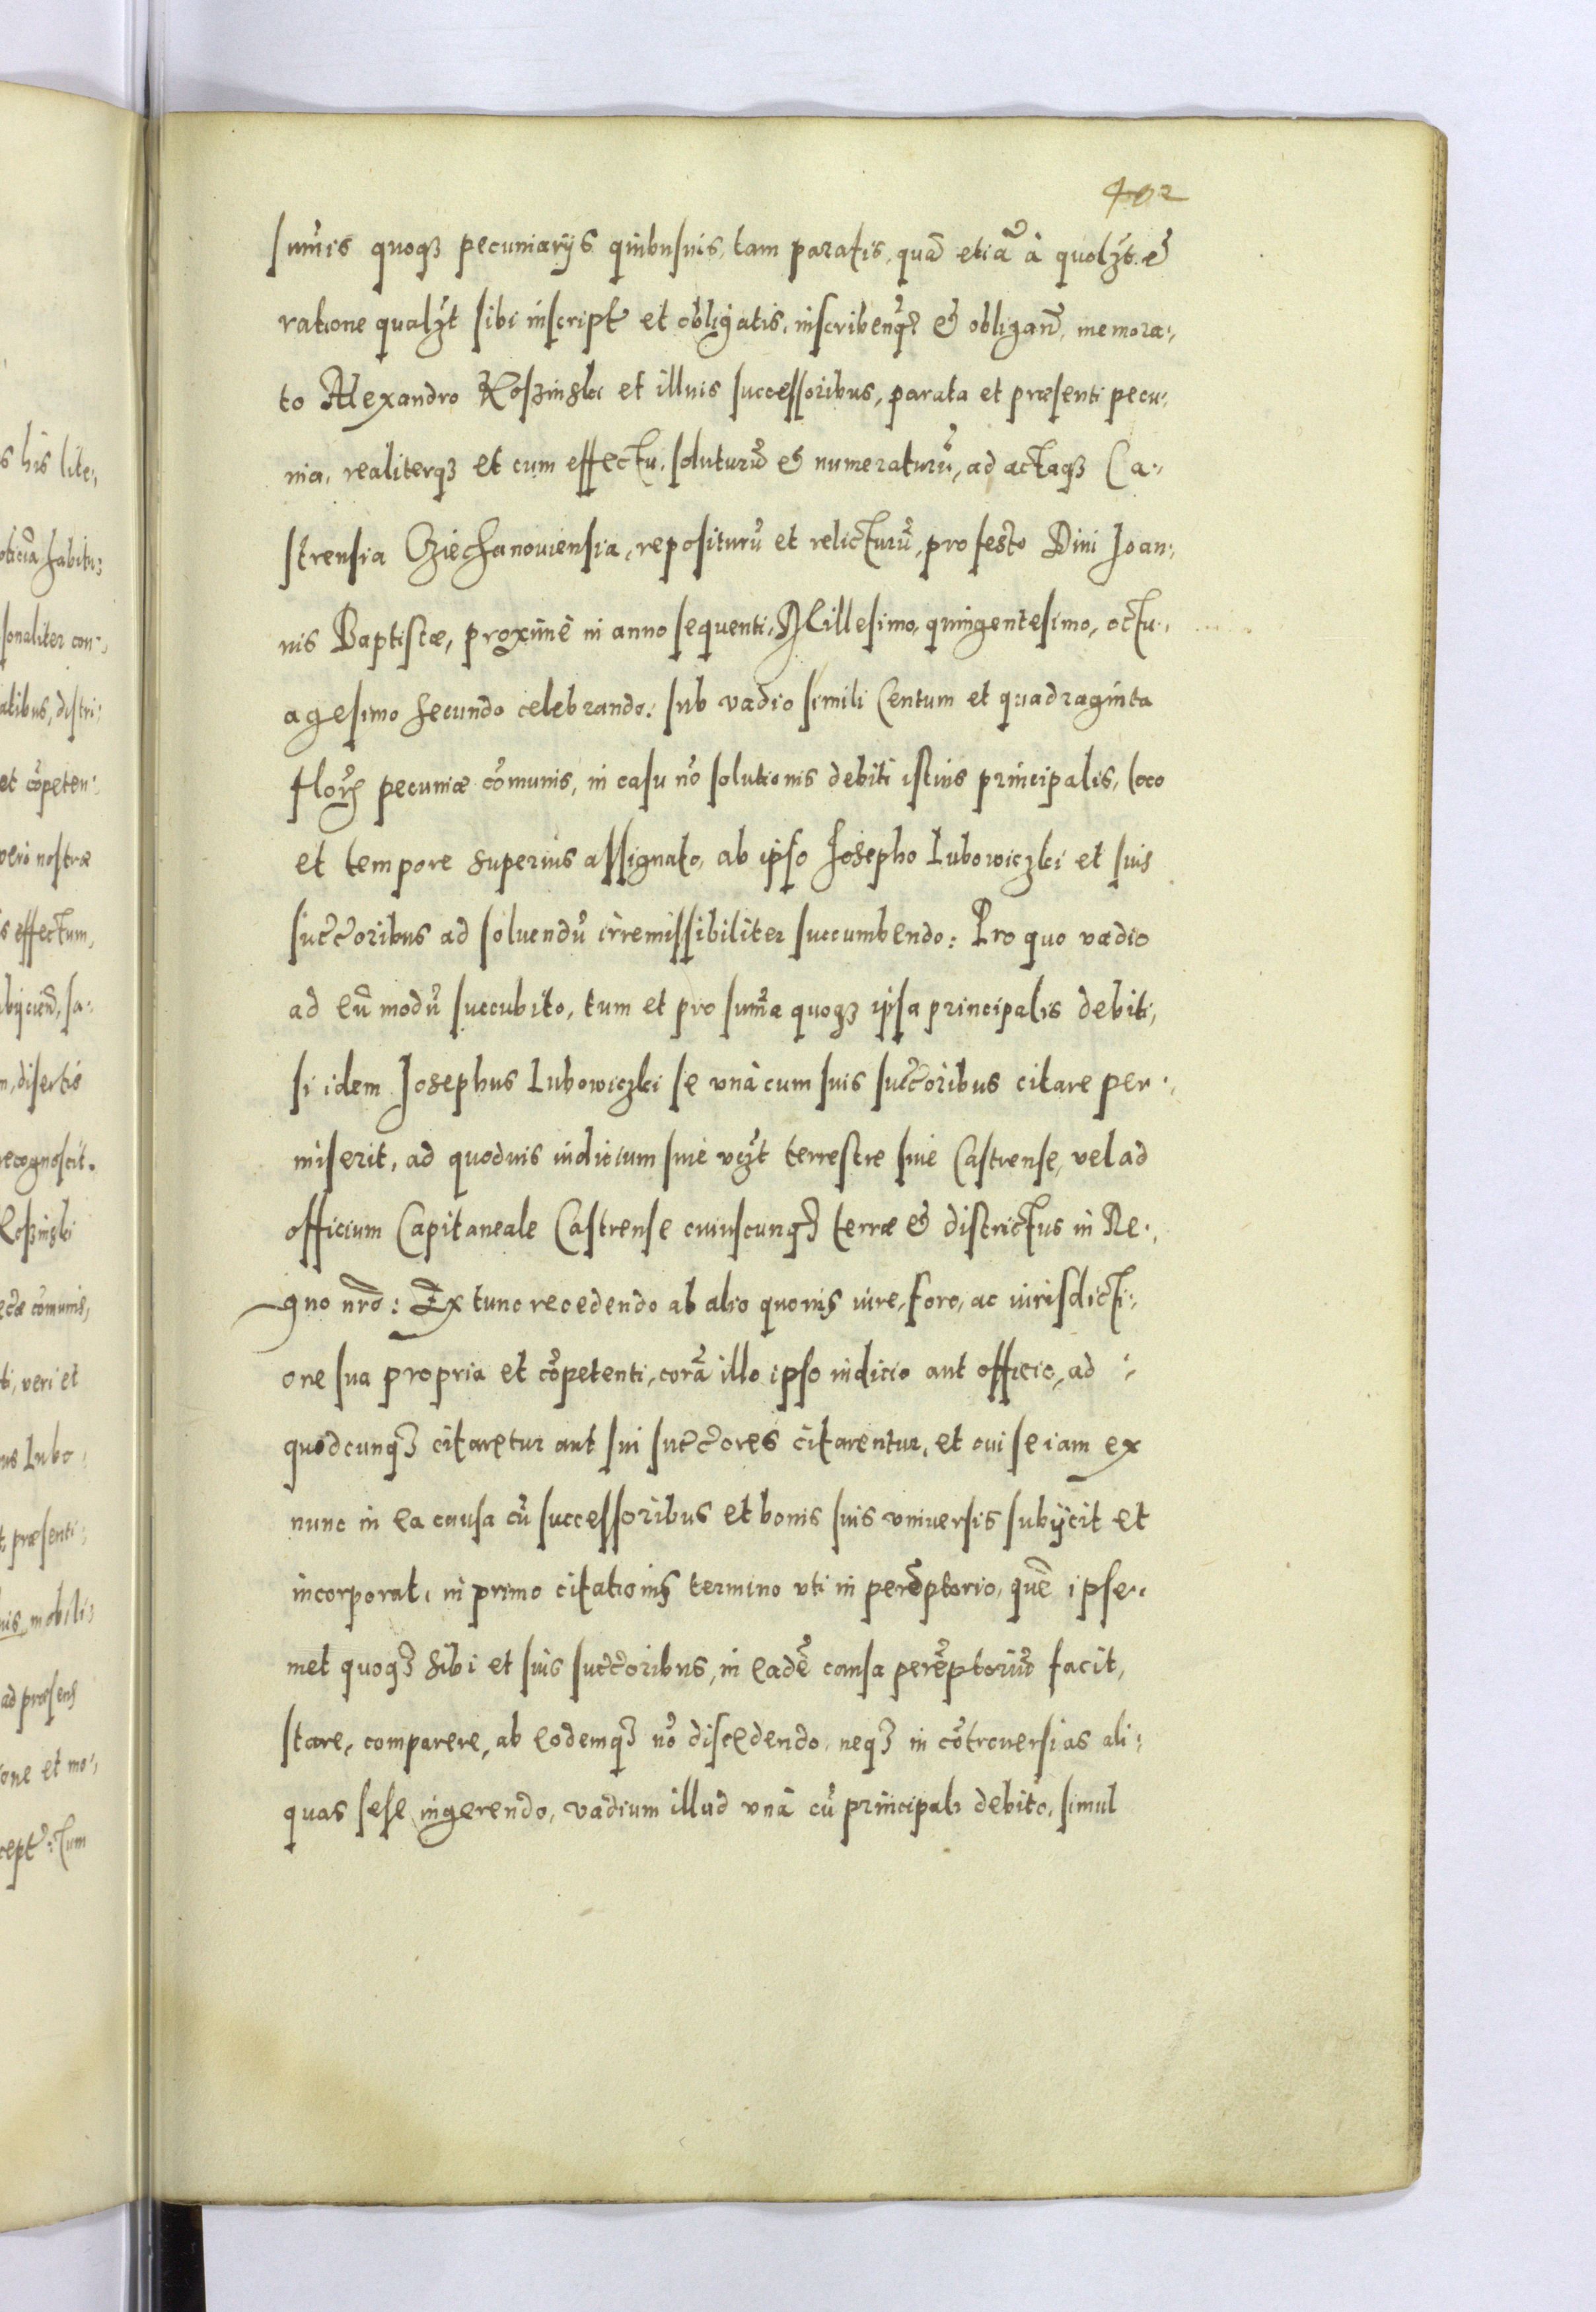 402
sum̃is quoqꝫ pecuniarijs quibusuis, tam paratis, quã etiã à quolꝫt. et
ratione qualꝫt sibi inscript̃ et obligatis, inscribenqꝫ et obligan̄, memora-,
to Alexandro Koszinski et illius successoribus, parata et præsenti pecu-,
nia, realiterqꝫ et cum effectu, soluturũ et numeraturũ, ad actaqꝫ Ca-,
strensia Cziechanouiensia, repositurũ et relicturũ, pro festo Diui Joan-,
nis Baptistæ, proximè in anno sequenti, Millesimo, quingentesimo, octu-,
agesimo secundo celebrando: sub vadio simili Centum et quadraginta
floꝝ pecuniæ cõmunis, in casu nõ solutionis debiti istius principalis, loco
et tempore superius assignato, ab ipso Josepho Lubowiczki et suis
succ̃oribus ad soluendũ irremissibiliter succumbendo: Pro quo vadio
ad eũ modũ succubito, tum et pro sum̃a quoqꝫ ipsa principalis debiti,
si idem Josephus Lubowiczki se vnà cum suis succ̃oribus citare per-,
miserit, ad quoduis iudicium siue vꝫt terrestre siue Castrense, vel ad
officium Capitaneale Castrense cuiuscunqꝫ terræ et districtus in Re-,
gno nr̃o: Ex tunc recedendo ab alio quouis iure, foro, ac iurisdicti-,
one sua propria et cõpetenti, corã illo ipso iudicio aut officio, ad -,
quodcunqꝫ citaretur aut sui succ̃ores citarentur, et cui se iam ex
nunc in ea causa cũ successoribus et bonis suis vniuersis subijcit et
incorporat, in primo citationis termino vti in perẽptorio, quẽ ipse-,
met quoqꝫ sibi et suis succ̃oribus, in eadẽ causa perẽptoriũ facit,
stare, comparere, ab eodemqꝫ nõ discedendo, neqꝫ in cõtrouersias ali-,
quas sese ingerendo, vadium illud vnà cũ principali debito, simul